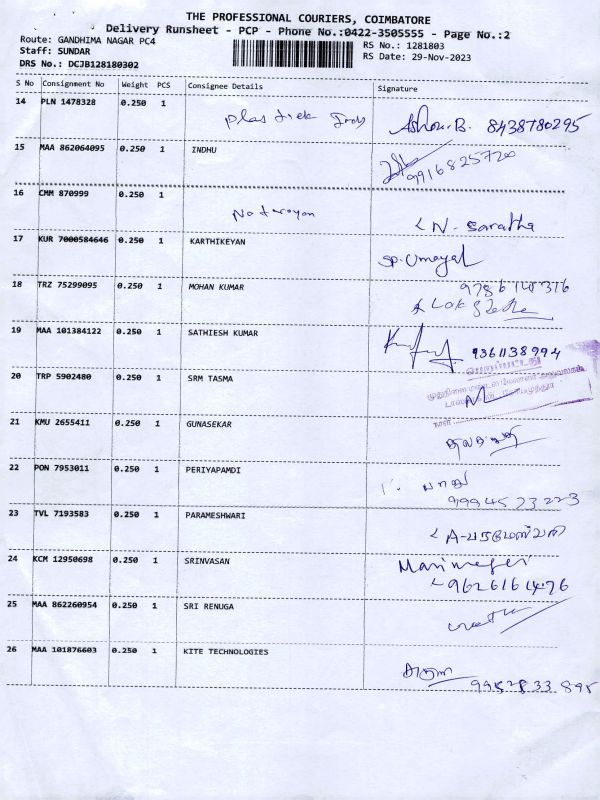 THE PROFESSIONAL COURIERS, COIMBATORE
Delivery Runsheet - PCP - Phone No.:0422-3505555 - Page No.:2
Route: GANDHIMA NAGAR PC4
RS No.: 1281803
Staff: SUNDAR
RS Date: 29-Nov-2023
DRS No.: DCJB128180302
S No Consignment No Weight PCS Consignee Details Signature
14 PLN 1478328 0.250 1 8438780295
15 MAA 862064095 0.250 1 INDHU
9916825720
16 CMM 870999 0.250 1
Natarayan N. Saratha
17 KUR 7000584646 0.250 1 KARTHIKEYAN
SP. Umayal
18 TRZ 75299095 0.250 1 MOHAN KUMAR
19 MAA 101384122 0.250 1 SATHIESH KUMAR
9361138994
பெறப்பட்டது
20 TRP 5902480 0.250 1 SRM TASMA
நாள்
21 KMU 2655411 0.250 1 GUNASEKAR
22 PON 7953011 0.250 1 PERIYAPAMDI
9994573223
23 TVL 7193583 0.250 1 PARAMESHWARI
A-பரமேஸ்வரி
24 KCM 12950698 0.250 1 SRINVASAN
9626161476
25 MAA 862260954 0.250 1 SRI RENUGA
26 MAA 101876603 0.250 1 KITE TECHNOLOGIES